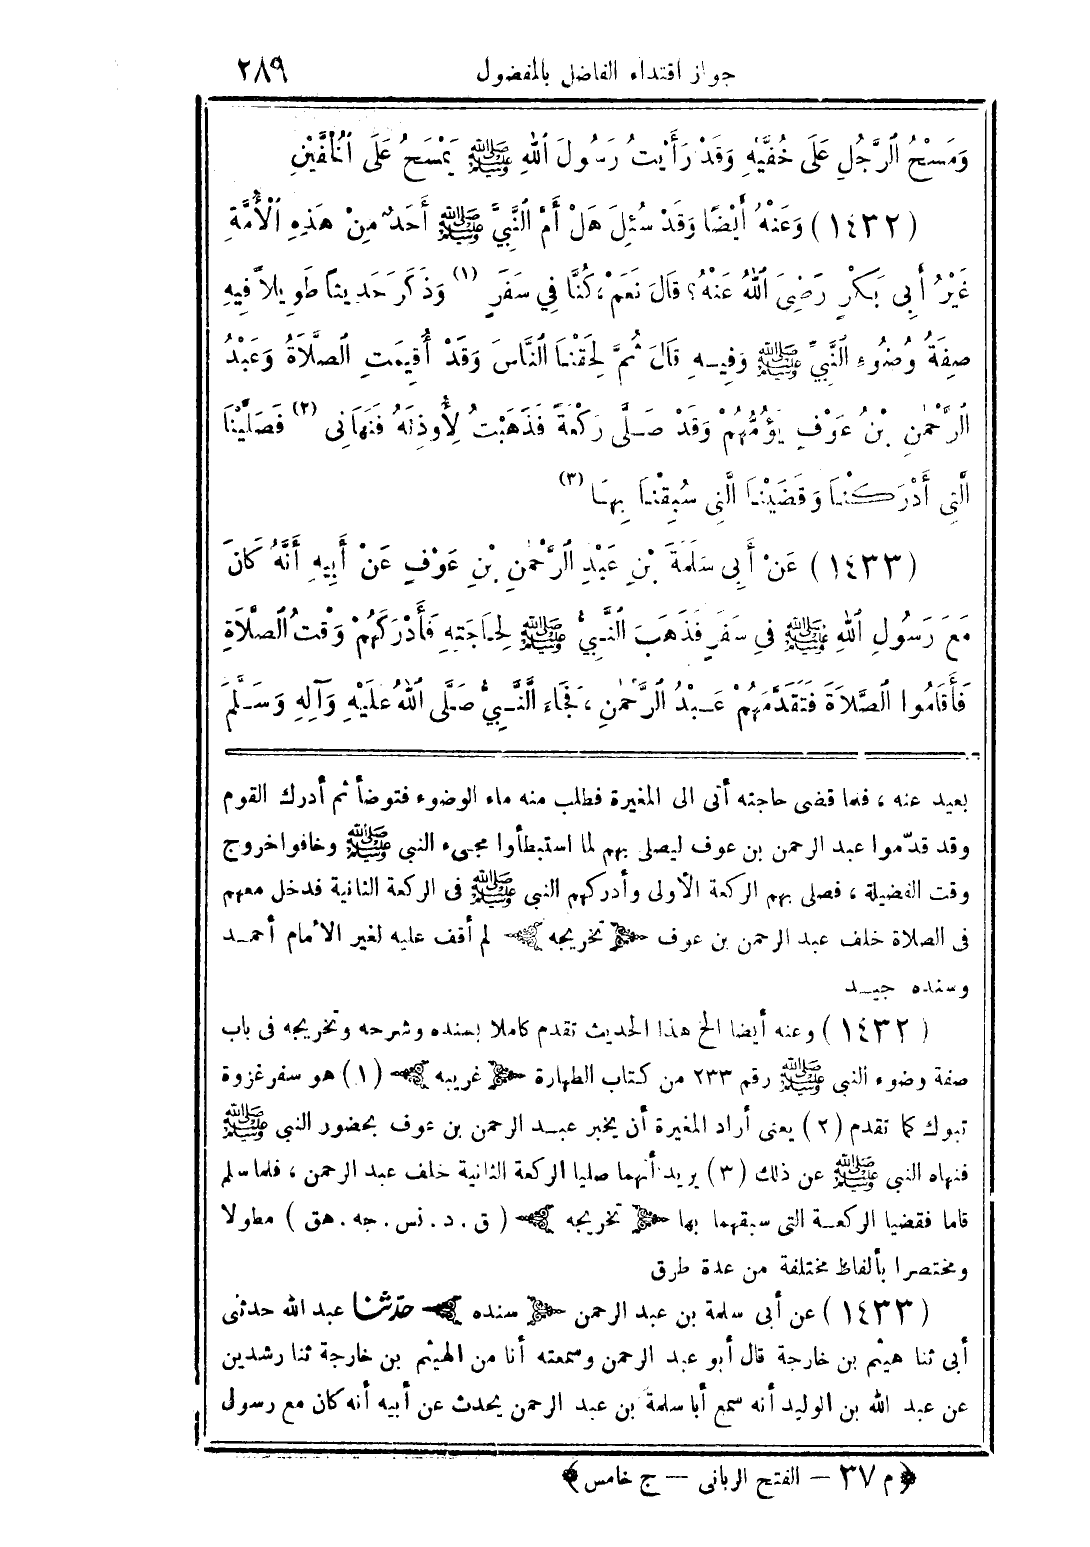 جواز اقتداء الفاضل بالمفضول ٢٨٩
وَمَسْحُ الرَّجُلِ عَلَى خُفَّيْهِ وَقَدْ رَأَيْتُ رَسُولَ اللهِ ﷺ يَمْسَحُ عَلَى الْخُفَّيْنِ
(١٤٣٢) وَعَنْهُ أَيْضًا وَقَدْ سُئِلَ هَلْ أَمَّ النَّبِيَّ ﷺ أَحَدٌ مِنْ هَذِهِ الْأُمَّةِ
غَيْرُ أَبِي بَكْرٍ رَضِيَ اللهُ عَنْهُ؟ قَالَ نَعَمْ، كُنَّا فِي سَفَرٍ (١) وَذَكَرَ حَدِيثًا طَوِيلاً فِيهِ
صِفَةُ وُضُوءِ النَّبِيِّ ﷺ وَفِيهِ قَالَ ثُمَّ لَحِقْنَا النَّاسَ وَقَدْ أُقِيمَتِ الصَّلَاةُ وَعَبْدُ
الرَّحْمٰنِ بْنُ عَوْفٍ يَؤُمُّهُمْ وَقَدْ صَلَّى رَكْعَةً فَذَهَبْتُ لِأُوذِنَهُ فَنَهَانِى (٢) فَصَلَّيْنَا
الَّتِي أَدْرَكْنَا وَقَضَيْنَا الَّتِي سُبِقْنَا بِهَا (٣)
(١٤٣٣) عَنْ أَبِي سَلَمَةَ بْنِ عَبْدِ الرَّحْمٰنِ بْنِ عَوْفٍ عَنْ أَبِيهِ أَنَّهُ كَانَ
مَعَ رَسُولِ اللهِ ﷺ فِي سَفَرٍ فَذَهَبَ النَّبِيُّ ﷺ لِحَاجَتِهِ فَأَدْرَكَهُمْ وَقْتُ الصَّلَاةِ
فَأَقَامُوا الصَّلَاةَ فَتَقَدَّمَهُمْ عَبْدُ الرَّحْمٰنِ، فَجَاءَ النَّبِيُّ صَلَّى اللهُ عَلَيْهِ وَآلِهِ وَسَلَّمَ
بعيد عنه ، فلما قضى حاجته أتى الى المغيرة فطلب منه ماء الوضوء فتوضأ ثم أدرك القوم
وقد قدّموا عبد الرحمن بن عوف ليصلى بهم لما استبطأوا مجىء النبي ﷺ وخافوا خروج
وقت الفضيلة ، فصلى بهم الركعة الأولى وأدركهم النبي ﷺ فى الركعة الثانية فدخل معهم
فى الصلاة خلف عبد الرحمن بن عوف ﴿ تخريجه ﴾ لم أقف عليه لغير الأمام أحمد
وسنده جيد
(١٤٣٢) وعنه أيضا الخ هذا الحديث تقدم كاملا بسنده وشرحه وتخريجه فى باب
صفة وضوء النبي ﷺ رقم ٢٣٣ من كتاب الطهارة ﴿ غريبه ﴾ (١) هو سفر غزوة
تبوك كما تقدم (٢) يعنى أراد المغيرة أن يخبر عبد الرحمن بن عوف بحضور النبي ﷺ
فنهاه النبي ﷺ عن ذلك (٣) يريد أنهما صليا الركعة الثانية خلف عبد الرحمن ، فلما سلم
قاما فقضيا الركعة التى سبقهما بها ﴿ تخريجه ﴾ (ق . د . نس . جه . هق) مطولا
ومختصرا بألفاظ مختلفة من عدة طرق
(١٤٣٣) عن أبى سلمة بن عبد الرحمن ﴿ سنده ﴾ حدثنا عبد الله حدثنى
أبى ثنا هيثم بن خارجة قال أبو عبد الرحمن وسمعته أنا من الهيثم بن خارجة ثنا رشدين
عن عبد الله بن الوليد أنه سمع أبا سلمة بن عبد الرحمن يحدث عن أبيه أنه كان مع رسول
﴿ م ٣٧ – الفتح الربانى – ج خامس ﴾